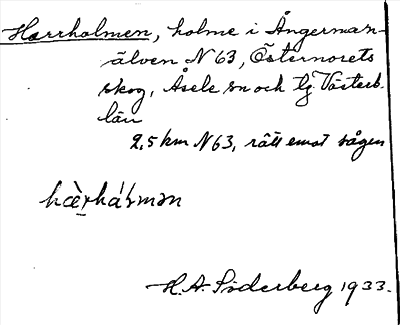 Harrholmen, holme i Ångerman-
älven N 63, Östernorets
skog, Åsele sn och tg. Västerb.
län
2,5 km N 63, rätt emot sågen
H. A. Söderberg 1933.